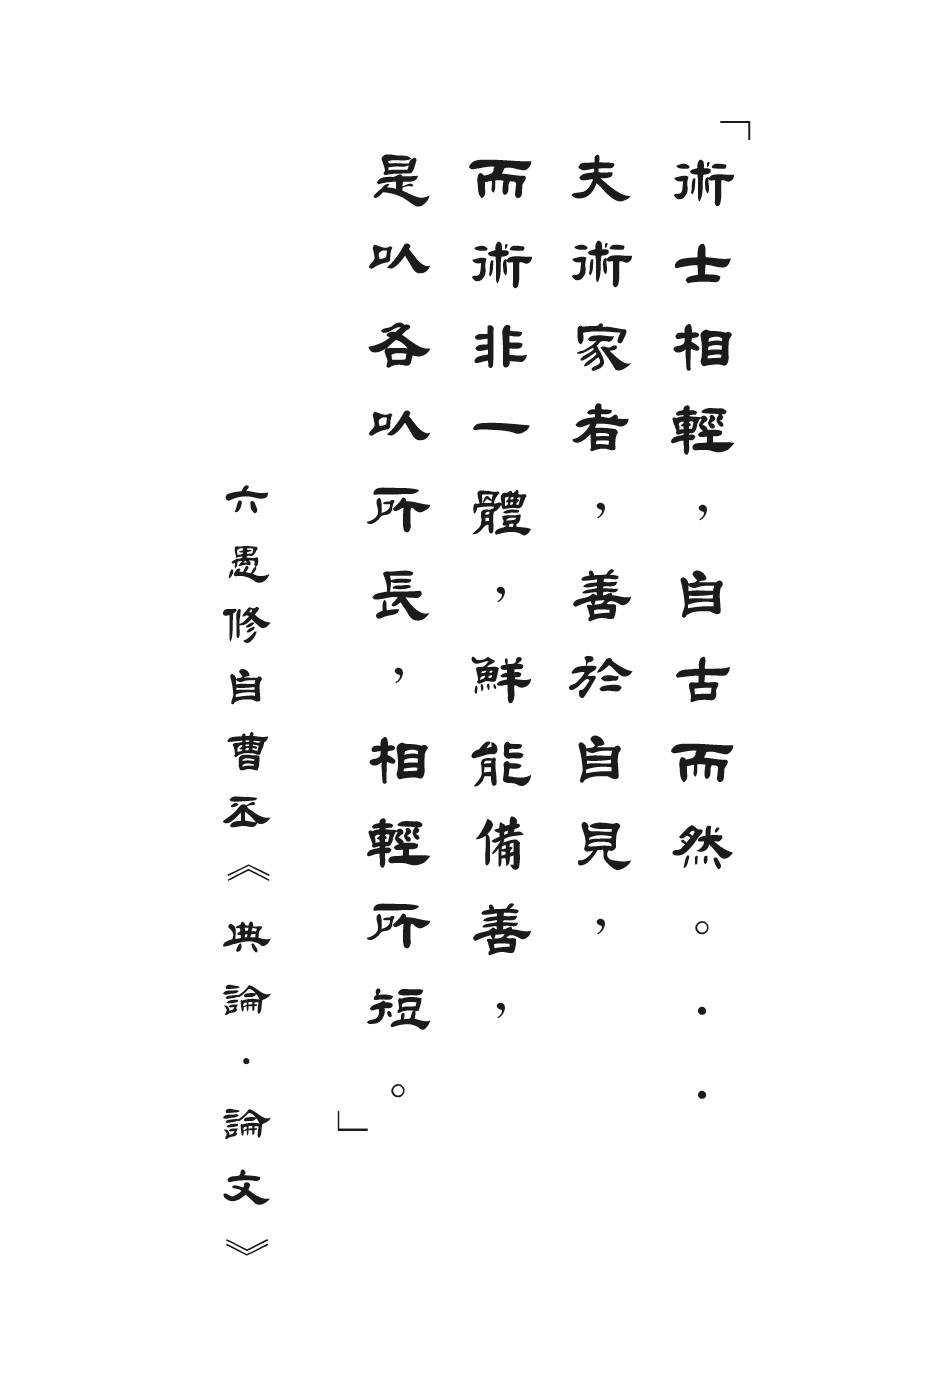 「術士相輕，自古而然。··
夫術家者，善於自見，
而術非一體，鮮能備善，
是以各以所長，相輕所短。」
六愚修自曹丕《典論·論文》